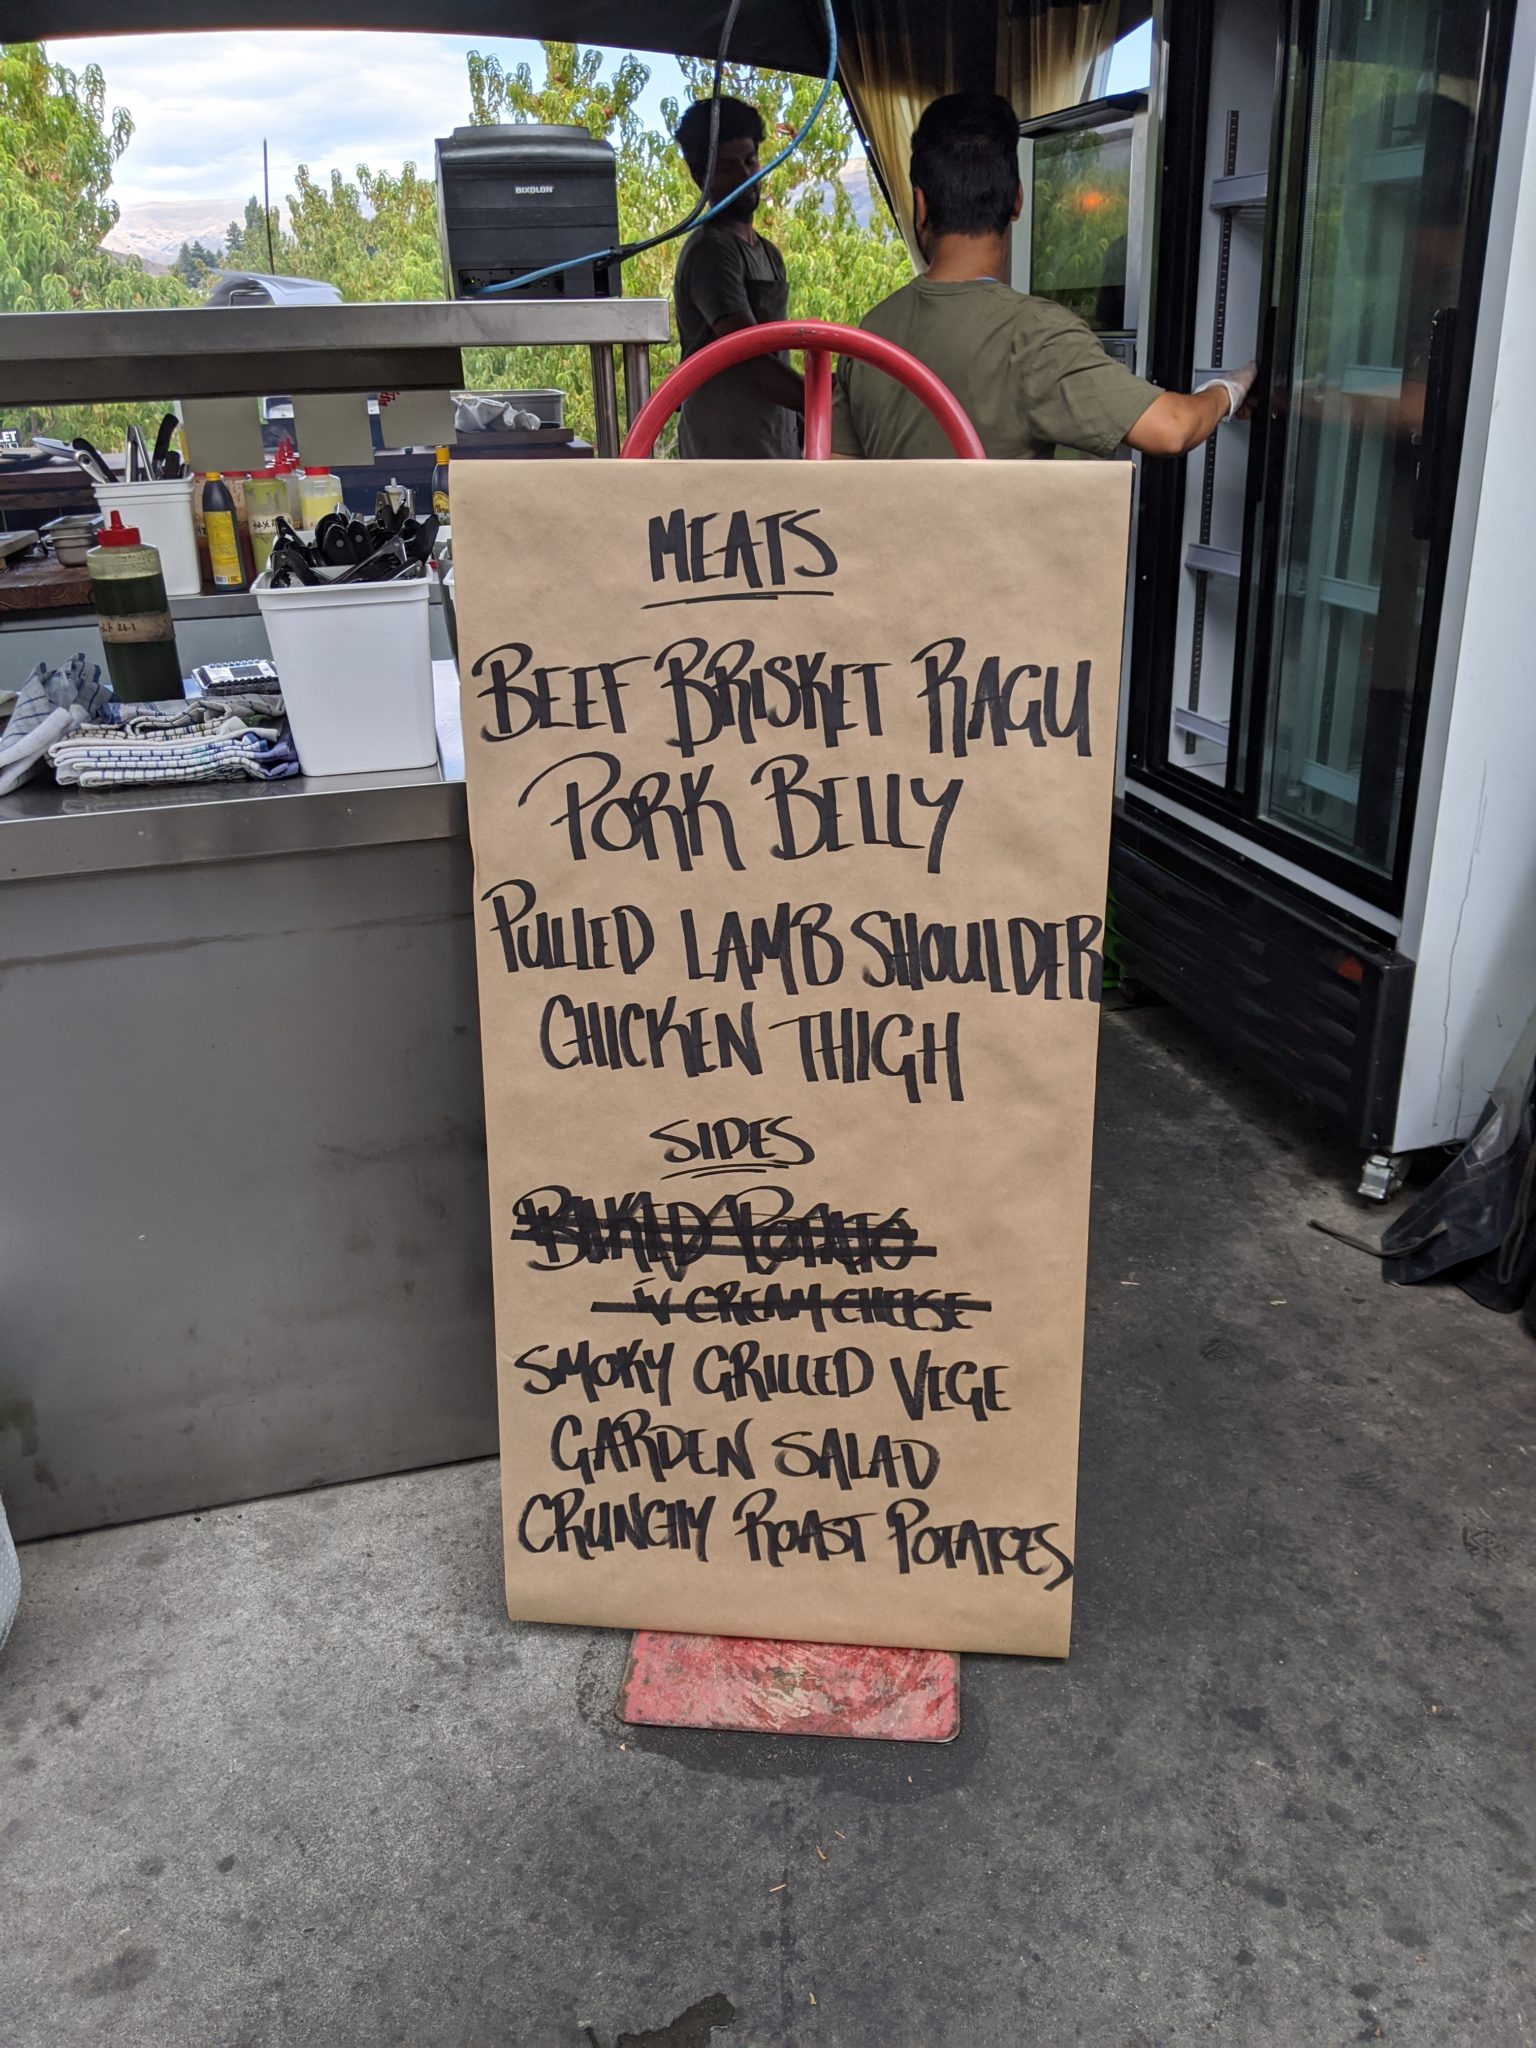 BIXOLON
MEATS
BEEF BRISKET RAGU
PORK BELLY
PULLED LAMB SHOULDER
CHICKEN THIGH
SIDES
BAKED POTATO
W CREAM CHEESE
SMOKY GRILLED VEGE
GARDEN SALAD
CRUNCHY ROAST POTATOES